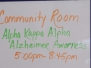 Community Room
Alpha Kappa Alpha
Alzheimer Awareness
5:00pm-8:45pm